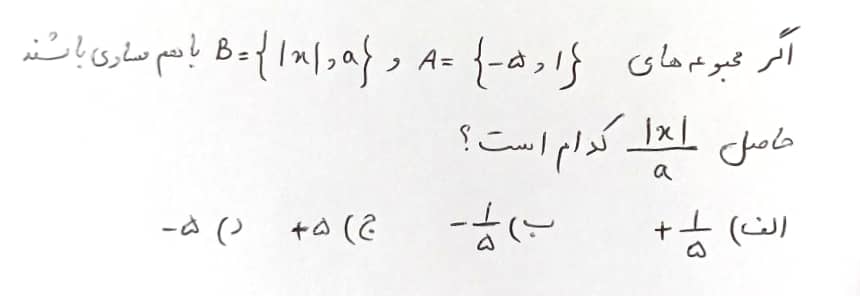 اگر مجموعه های A = {-۵ , ۱} و B = {|x| , a} با هم مساوی باشند
حاصل |x|/a کدام است؟
الف) +۱/۵ ب) -۱/۵ ج) +۵ د) -۵